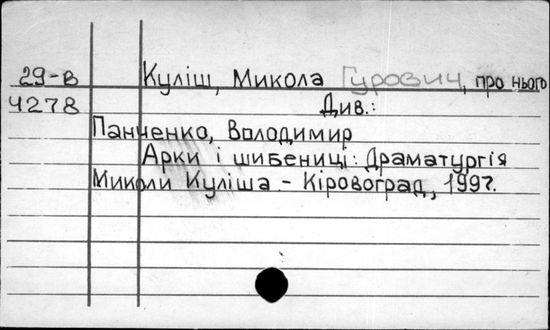 29-в Куліш, Микола Гурович, про нього
4278 Див.:
Панченко, Володимир
Арки і шибениці: Драматургія
Миколи Куліша - Кіровоград, 1997.